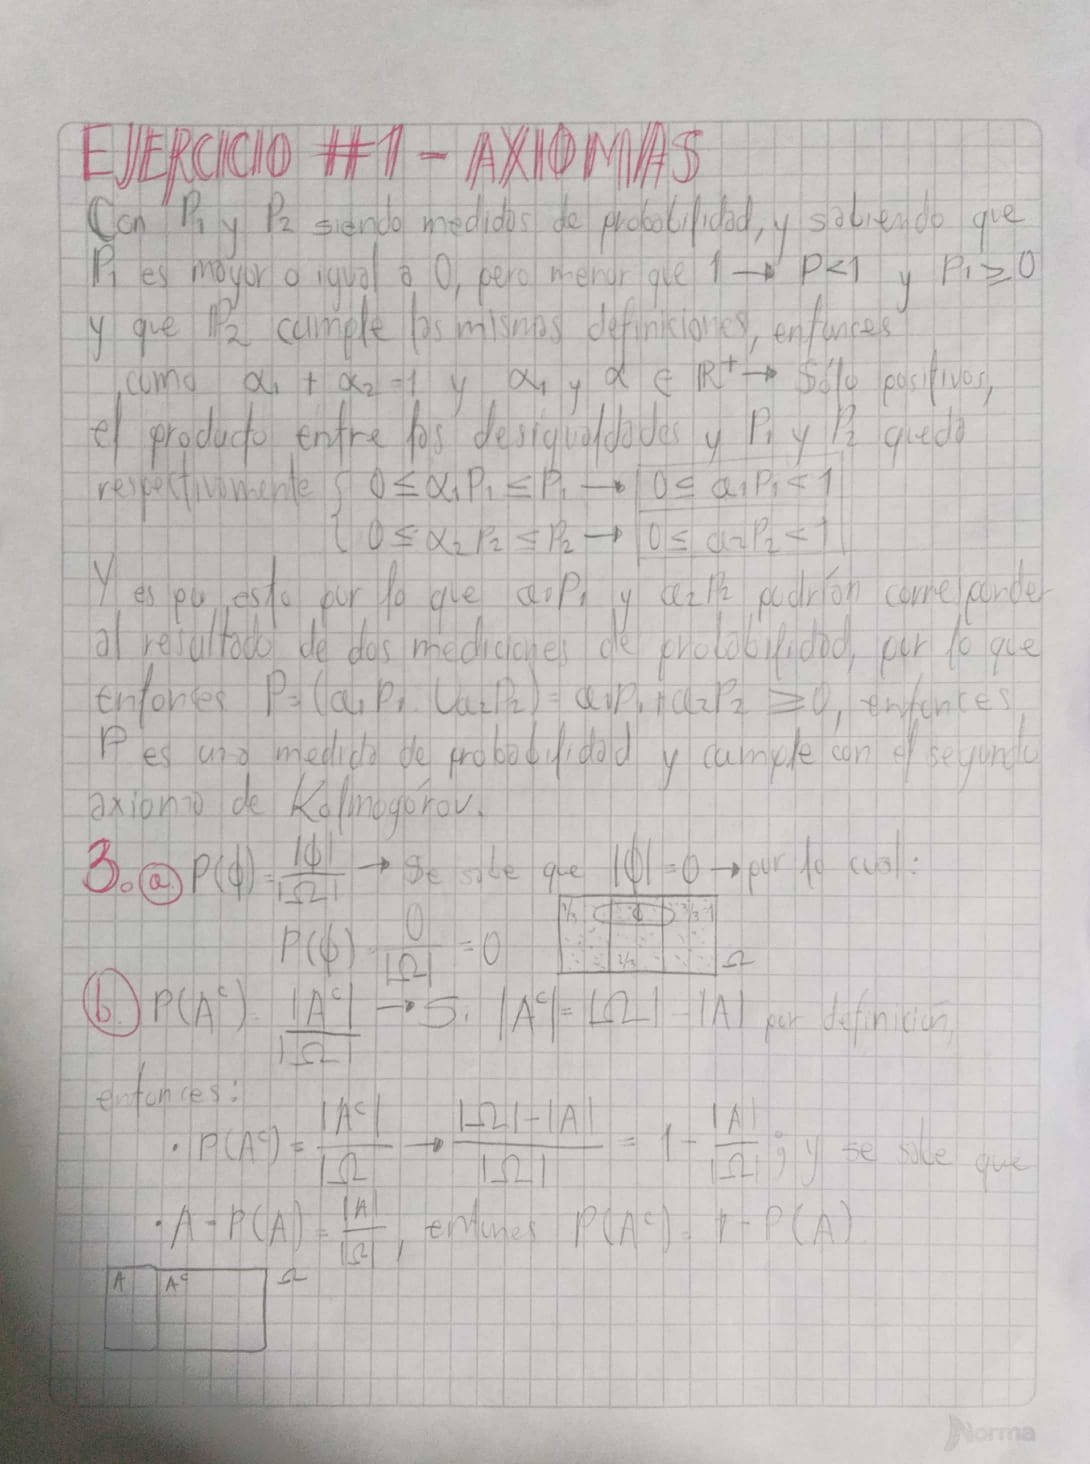 EJERCICIO #1 - AXIOMAS
Con P₁ y P₂ siendo medidas de probabilidad, y sabiendo que
P₁ es mayor o igual a 0, pero menor que 1 → P<1 y P₁ ≥ 0
y que P₂ cumple las mismas definiciones, entonces
como α₁ + α₂ = 1 y α₁ y α ∈ ℝ⁺ → Sólo positivos,
el producto entre las desigualdades y P₁ y P₂ queda
respectivamente { 0 ≤ α₁P₁ ≤ P₁ → 0 ≤ α₁P₁ < 1
0 ≤ α₂P₂ ≤ P₂ → 0 ≤ α₂P₂ < 1
Y es esto por lo que α₁P₁ y α₂P₂ podrían corresponder
al resultado de dos mediciones de probabilidad, por lo que
entonces P = (α₁P₁ ∪ α₂P₂) = α₁P₁ + α₂P₂ ≥ 0, entonces
P es una medida de probabilidad y cumple con el segundo
axioma de Kolmogórov.
3. a) P(ϕ) = |ϕ| / |Ω| → Se sabe que |ϕ| = 0 → por lo cual:
P(ϕ) = 0 / |Ω| = 0
ϕ Ω
b) P(Aᶜ) = |Aᶜ| / |Ω| → Si |Aᶜ| = |Ω| - |A| por definición,
entonces:
· P(Aᶜ) = |Aᶜ| / |Ω → |Ω| - |A| / |Ω| = 1 - |A| / |Ω| ; y se sabe que
· A → P(A) = |A| / |Ω|, entonces P(Aᶜ) = 1 - P(A)
A Aᶜ Ω
Norma